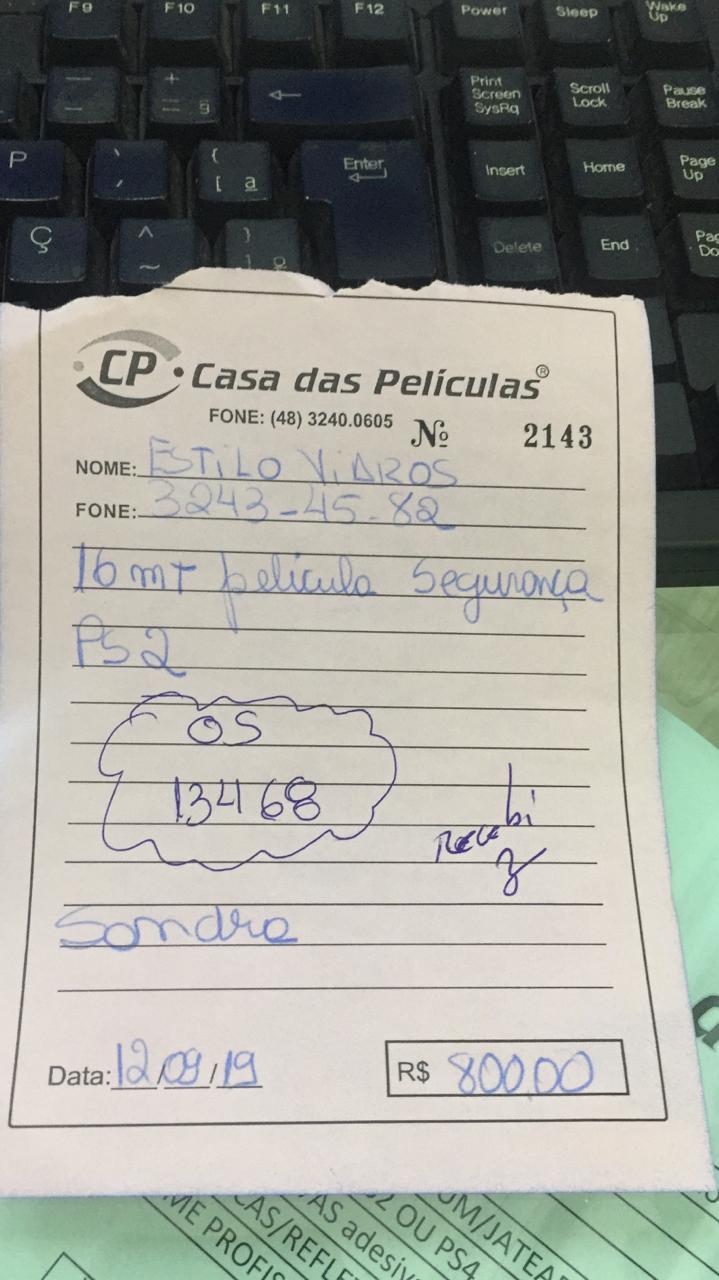 F9 F10 F11 F12 Power Sleep Wake Up
Print Screen SysRq Scroll Lock Pause Break
P Enter Insert Home Page Up
Ç Delete End
CP Casa das Películas®
FONE: (48) 3240.0605 Nº 2143
NOME: ESTILO ViDROS
FONE: 3243-45-82
16 mT película Segurança
PS2
OS
13468
Recebi
Sandra
Data: 12/09/19 R$ 800,00
UM/JATEA
2 OU PS4
AS adesiv
CAS/REFLE
ME PROFIS